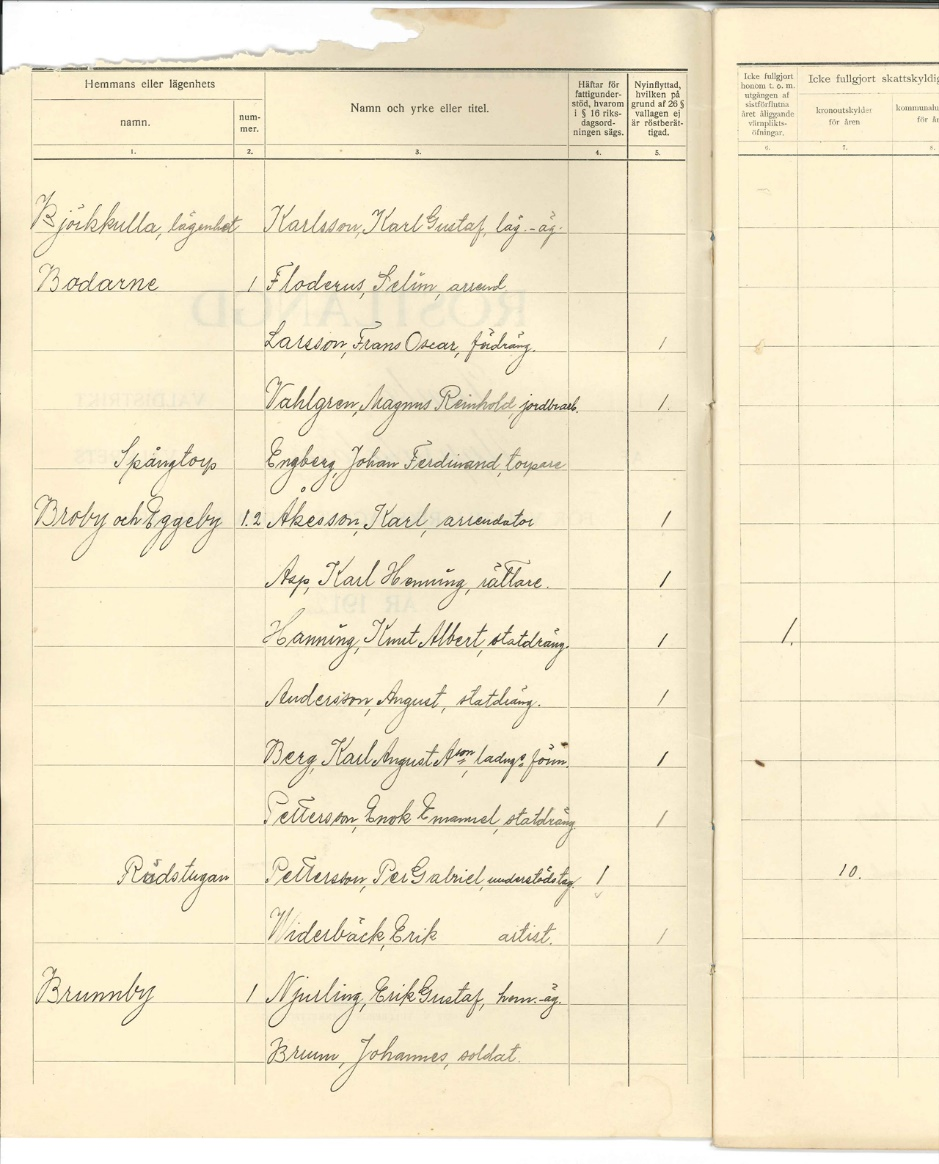 Hemmans eller lägenhets
namn.
num-
mer.
Namn och yrke eller titel.
Häftar för
fattigunder-
stöd, hvarom
i § 16 riks-
dagsord-
ningen sägs.
Nyinflyttad,
hvilken på
grund af 26 §
vallagen ej
är röstberät-
tigad.
Icke fullgjort
honom t. o. m.
utgången af
sistförflutna
året åliggande
värnplikts-
öfningar.
Icke fullgjort skattskyldig
kronoutskylder
för åren
kommunalu
för å
1. 2. 3. 4. 5. 6. 7. 8.
Björkkulla, lägenhet Karlsson, Karl Gustaf, läg.-äg.
Bodarne 1 Floderus, Selim, arrend.
Larsson, Frans Oscar, förd räng. 1
Vahlgren, Magnus Reinhold, jordbrarb. 1.
Spångtorp Engberg, Johan Ferdinand, torpare
Broby och Eggeby 1.2 Åkesson, Karl, arrendator 1
Asp, Karl Henning, rättare. 1
Hanning, Knut Albert, statdräng. 1 1.
Andersson, August, statdräng. 1
Berg, Karl August Ason, ladugs förm. 1
Pettersson, Enok Emanuel, statdräng 1
Rödstugan Pettersson, Per Gabriel, understödstag. 1 10.
Widerbäck, Erik artist. 1
Brunnby 1 Njurling, Erik Gustaf, hem.-äg.
Brum, Johannes, soldat.
RÖSTLÄNGD
VALDISTRIKT
ÅR 191